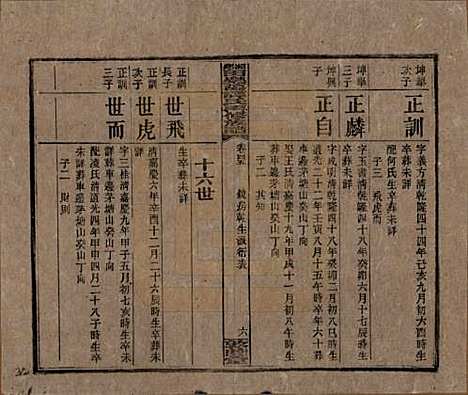 坤舉次子
正訓
字義方清乾隆四十四年己亥九月初六酉時生
卒葬未詳
配何氏生卒葬未詳
子三 飛虎而
坤舉三子
正麟
字玉書清乾隆四十八年癸卯六月十七辰時生
卒葬未詳
坤興子
正自
字成明清乾隆四十八年癸卯二月初八巳時生
道光二十二年壬寅八月十五午時卒年六十葬
詳車邊茅塘山癸山丁向
娶王氏清嘉慶十九年甲戌十一月初八午時生
子二 其知
十六世
卷 鏡房乾生派衍表
六
正訓長子
世飛
生卒葬未詳
正訓次子
世虎
清嘉慶六年辛酉十二月二十六辰時生卒葬未詳
正訓三子
世而
字三桂清嘉慶九年甲子五月初七亥時生卒未
詳葬車邊茅塘山癸山丁向
配凌氏清道光四年甲申四月二十八子時生卒
未詳葬車邊茅塘山癸山丁向
子二 財則